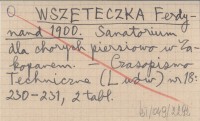 WSZETECZKA Ferdy-
nand 1900. Sanatorium
dla chorych piersiowo w Za-
kopanem. — Czasopismo
Techniczne (Lwów) nr 18:
230-231, 2 tabl.